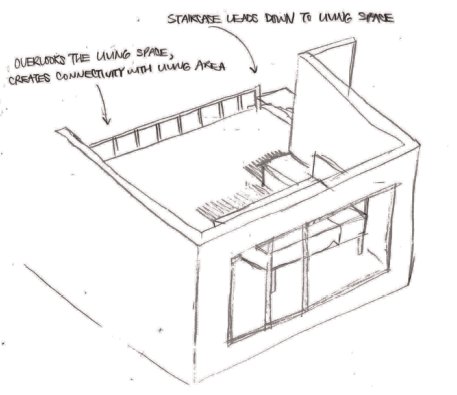 STAIRCASE LEADS DOWN TO LIVING SPACE
OVERLOOKS THE LIVING SPACE,
CREATES CONNECTIVITY WITH LIVING AREA